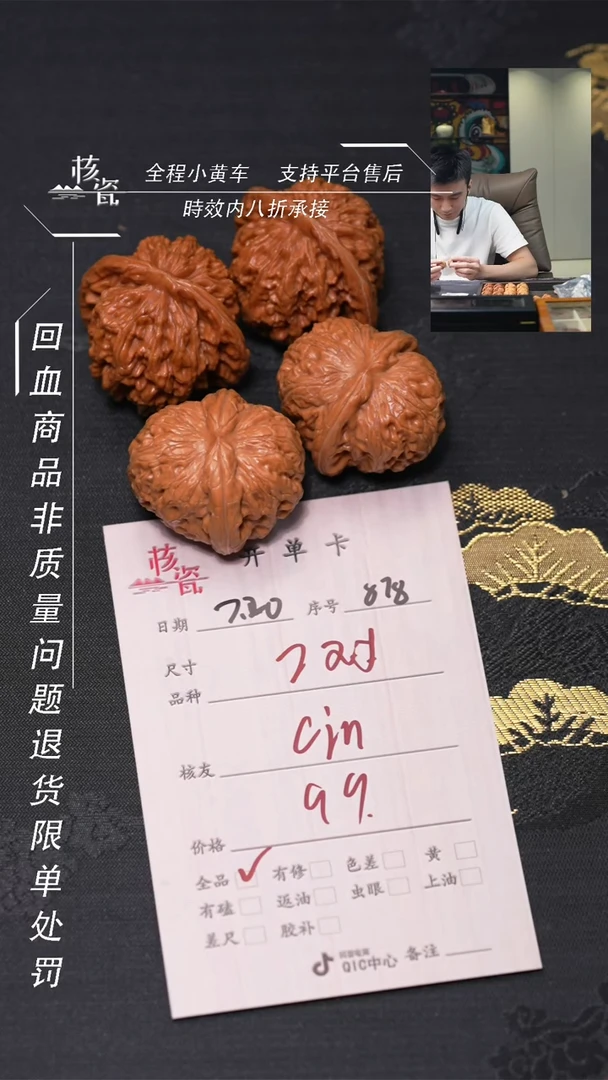 核瓷
全程小黄车 支持平台售后
時效内八折承接
回血商品非质量问题退货限单处罚
核瓷 开单卡
日期 7.20 序号 878
尺寸
品种
核友 Cjn
价格 99.
全品 ✓ 有修 色差 黄
有磕 返油 虫眼 上油
差尺 胶补
QIC中心 备注